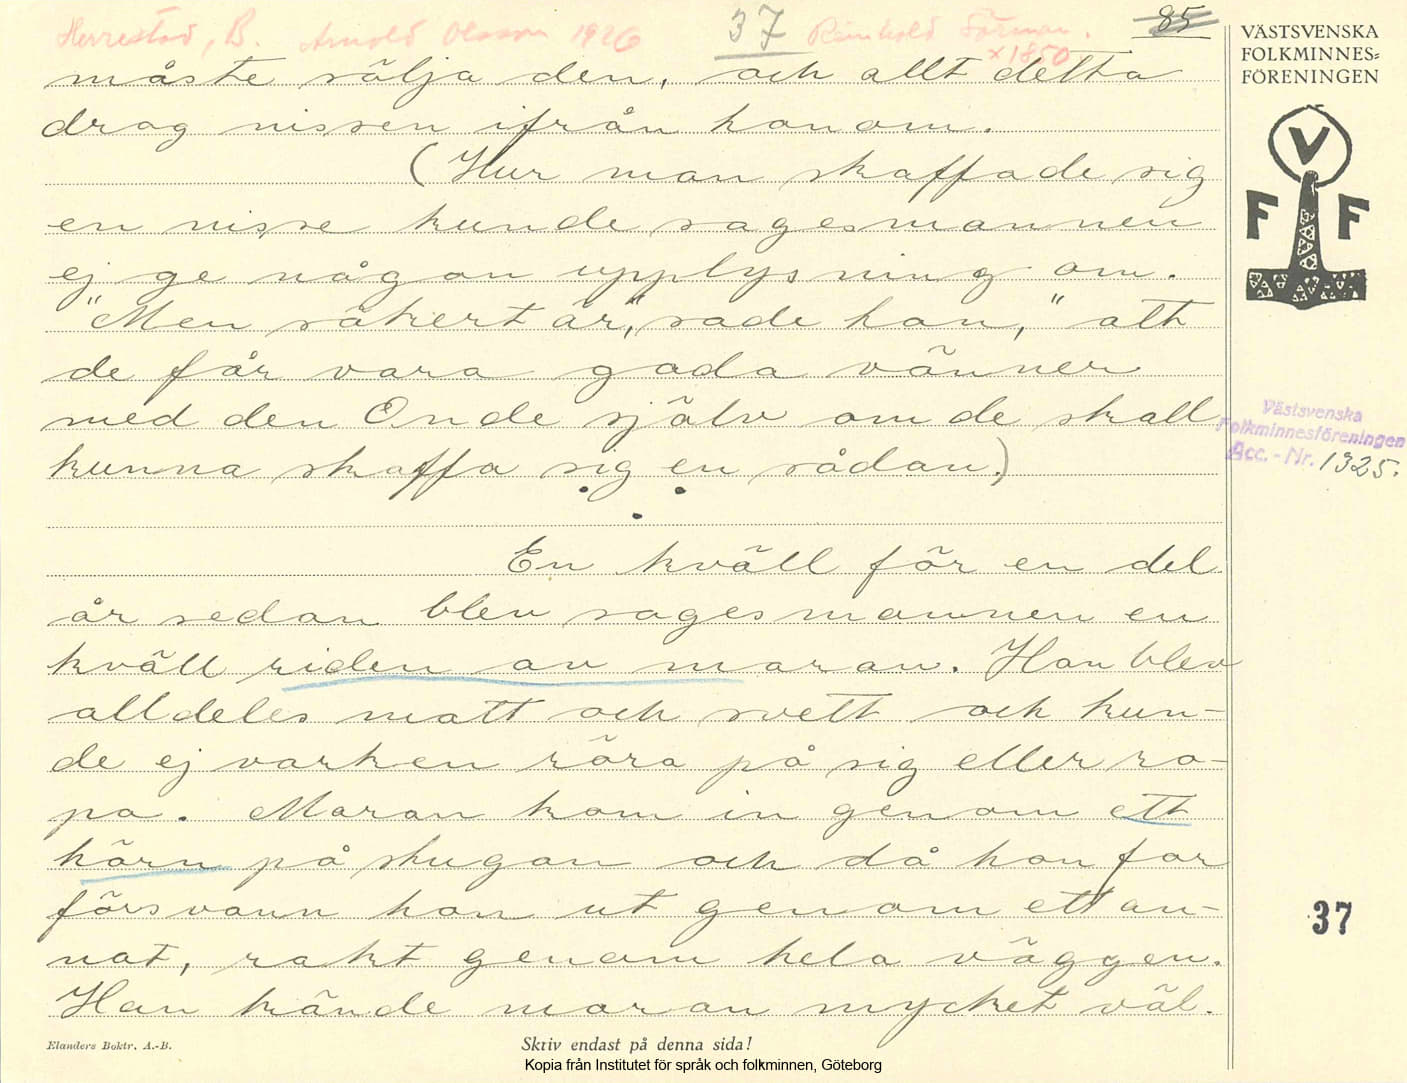 Herrestad, B. Arnold Olsson 1926 37 Reinhold Förman. 85
×1850
VÄSTSVENSKA
FOLKMINNES=
FÖRENINGEN
V
F F
måste sälja den, och allt detta
drog nissen ifrån honom.
(Hur man skaffade sig
en nisse kunde sagesmannen
ej ge någon upplysning om.
"Men säkert är," sade han, "att
de får vara goda vänner
med den Onde själv om de skall
kunna skaffa sig en sådan.)
Västsvenska
Folkminnesföreningen
Acc.-Nr. 1325.
En kväll för en del
år sedan blev sagesmannen en
kväll riden av maran. Han blev
alldeles matt och svett och kun-
de ej varken röra på sig eller ro-
pa. Maran kom in genom ett
hörn på stugan och då hon for
försvann hon ut genom ett an-
nat, rakt genom hela väggen.
Han kände maran mycket väl.
37
Elanders Boktr. A.-B.
Skriv endast på denna sida!
Kopia från Institutet för språk och folkminnen, Göteborg